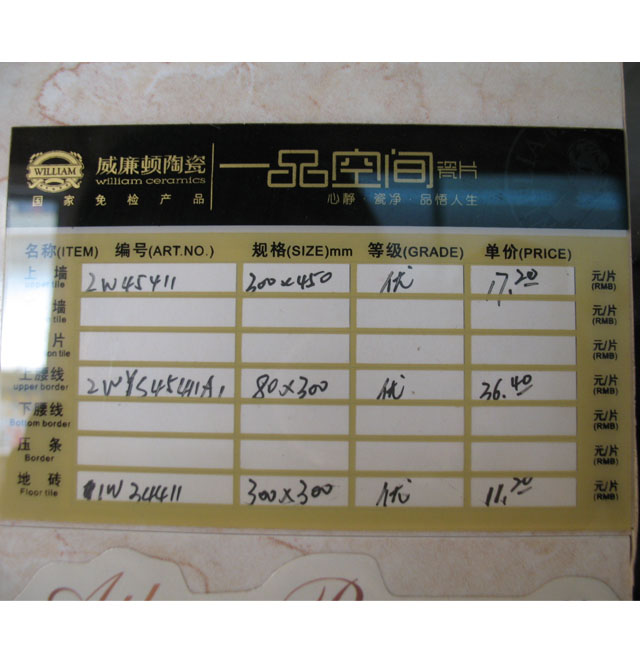 WILLIAM 威廉顿陶瓷 一品空间 瓷片
william ceramics
国家免检产品 心静·瓷净·品悟人生
名称(ITEM) 编号(ART.NO.) 规格(SIZE)mm 等级(GRADE) 单价(PRICE)
上墙 2W45411 300×450 优 17.20 元/片
upper tile (RMB)
墙 元/片
tile (RMB)
片 元/片
tile (RMB)
上腰线 80×300 优 36.40 元/片
upper border (RMB)
下腰线 元/片
Bottom border (RMB)
压条 元/片
Border (RMB)
地砖 1W34411 300×300 优 元/片
Floor tile (RMB)